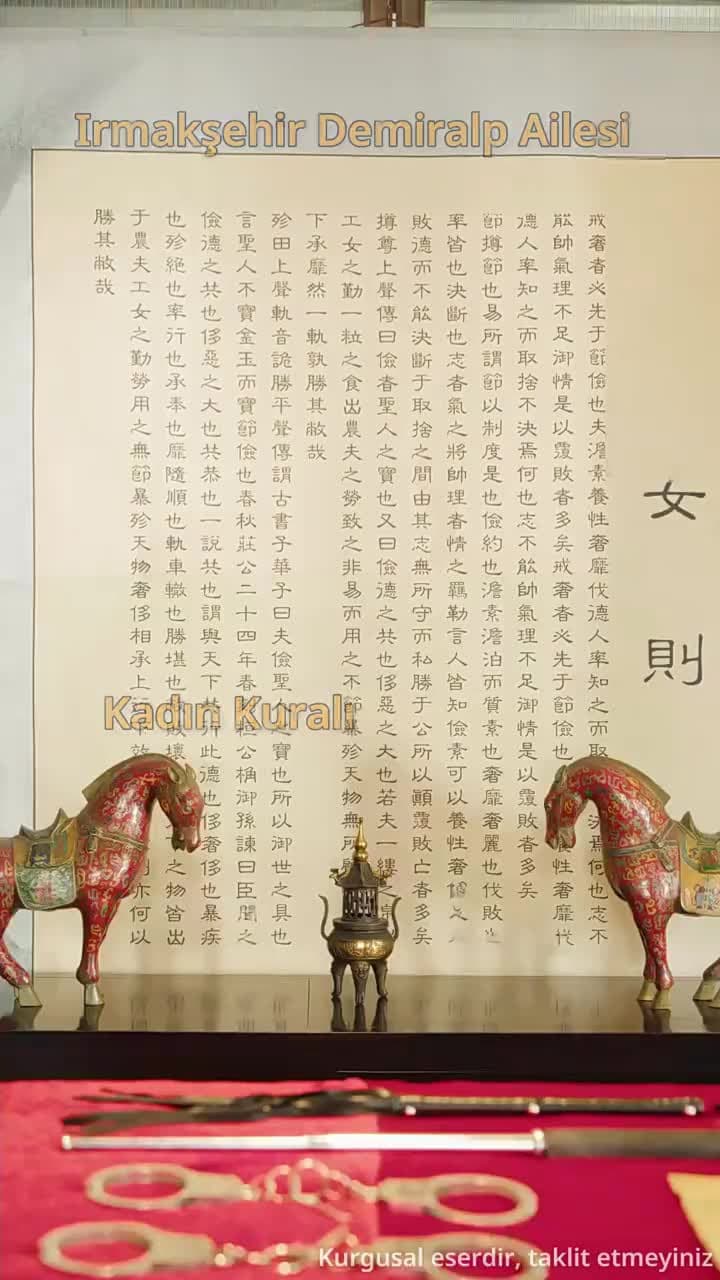 Irmakşehir Demiralp Ailesi
女則
戒奢者必先于節儉也夫澹素養性奢靡伐德人率知之而取決焉何也志不
能帥氣理不足御情是以覆敗者多矣戒奢者必先于節儉也養性奢靡伐
德人率知之而取捨不決焉何也志不能帥氣理不足御情是以覆敗者多矣
節撙節也易所謂節以制度是也儉約也澹素澹泊而質素也奢靡奢麗也伐敗也
率皆也決斷也志者氣之將帥理者情之羈勒言人皆知儉素可以養性奢
敗德而不能決斷于取捨之間由其志無所守而私勝于公所以顚覆敗亡者多矣
撙尊上聲傳曰儉者聖人之寶也又曰儉德之共也侈惡之大也若夫一縷之帛
工女之勤一粒之食出農夫之勞致之非易而用之不節暴殄天物無所
下承靡然一軌孰勝其敝哉
殄田上聲軌音詭勝平聲傳謂古書子華子曰夫儉聖人之寶也所以御世之具也
言聖人不寶金玉而寶節儉也春秋莊公二十四年春桓公桷御孫諫曰臣聞之
儉德之共也侈惡之大也共恭也一說共也謂與天下共行此德也侈奢侈也暴疾
也殄絕也率行也承奉也靡隨順也軌車轍也勝堪也敗壞之物皆出
于農夫工女之勤勞用之無節暴殄天物奢侈相承上效亦何以
勝其敝哉
Kadın Kuralı
Kurgusal eserdir, taklit etmeyiniz